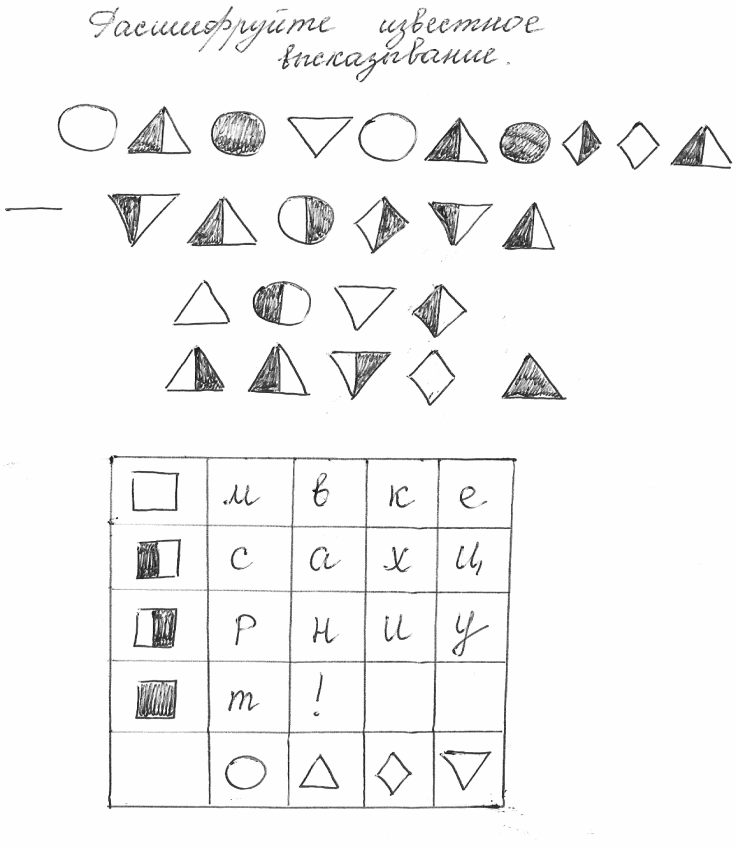 Расшифруйте известное
высказывание.
—
м в к е
с а х ц
р н и у
т !